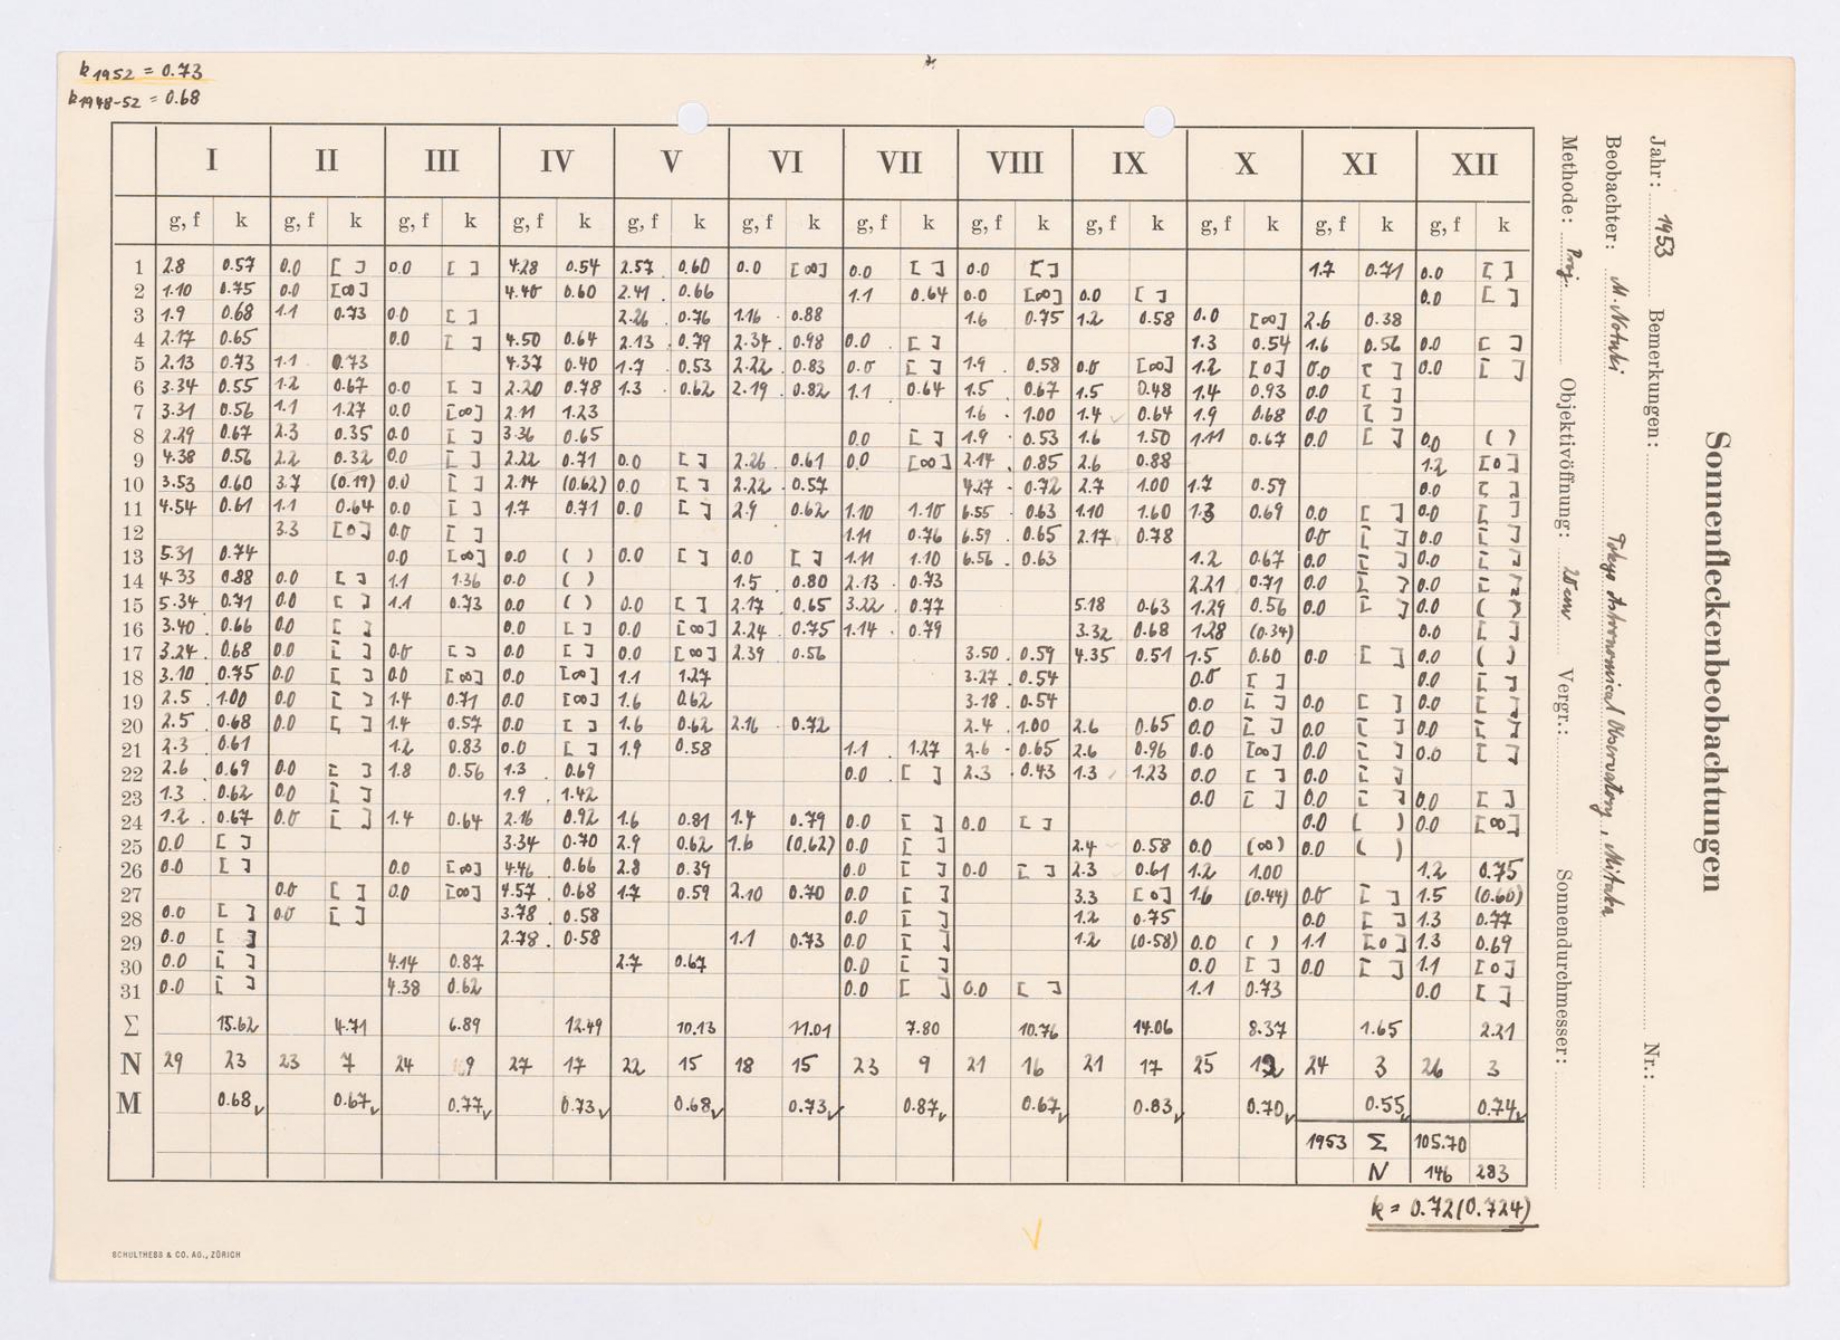 k 1952 = 0.73
k 1948-52 = 0.68
Sonnenfleckenbeobachtungen
Jahr: 1953 Bemerkungen: Nr.:
Beobachter: M. Notuki Tokyo Astronomical Observatory, Mitaka
Methode: Proj. Objektivöffnung: 20 cm Vergr.: Sonnendurchmesser:
I II III IV V VI VII VIII IX X XI XII
g, f k g, f k g, f k g, f k g, f k g, f k g, f k g, f k g, f k g, f k g, f k g, f k
1 2.8 0.57 0.0 [ ] 0.0 [ ] 4.28 0.54 2.57 0.60 0.0 [∞] 0.0 [ ] 0.0 [ ] 1.7 0.71 0.0 [ ]
2 1.10 0.75 0.0 [∞] 4.40 0.60 2.41 0.66 1.1 0.64 0.0 [∞] 0.0 [ ] 0.0 [ ]
3 1.9 0.68 1.1 0.73 0.0 [ ] 2.26 0.76 1.16 0.88 1.6 0.75 1.2 0.58 0.0 [∞] 2.6 0.38
4 2.17 0.65 0.0 [ ] 4.50 0.64 2.13 0.79 2.34 0.98 0.0 [ ] 1.3 0.54 1.6 0.56 0.0 [ ]
5 2.13 0.73 1.1 0.73 4.37 0.40 1.7 0.53 2.22 0.83 0.0 [ ] 1.9 0.58 0.0 [∞] 1.2 [0] 0.0 [ ] 0.0 [ ]
6 3.34 0.55 1.2 0.67 0.0 [ ] 2.20 0.78 1.3 0.62 2.19 0.82 1.1 0.64 1.5 0.67 1.5 0.48 1.4 0.93 0.0 [ ]
7 3.31 0.56 1.1 1.27 0.0 [∞] 2.11 1.23 1.6 1.00 1.4 0.64 1.9 0.68 0.0 [ ]
8 2.29 0.67 2.3 0.35 0.0 [ ] 3.36 0.65 0.0 [ ] 1.9 0.53 1.6 1.50 1.11 0.67 0.0 [ ] 0.0 ( )
9 4.38 0.56 2.2 0.32 0.0 [ ] 2.22 0.71 0.0 [ ] 2.26 0.61 0.0 [∞] 2.14 0.85 2.6 0.88 1.2 [0]
10 3.53 0.60 3.7 (0.19) 0.0 [ ] 2.14 (0.62) 0.0 [ ] 2.22 0.57 4.27 0.72 2.7 1.00 1.7 0.59 0.0 [ ]
11 4.54 0.61 1.1 0.64 0.0 [ ] 1.7 0.71 0.0 [ ] 2.9 0.62 1.10 1.10 6.55 0.63 1.10 1.60 1.3 0.69 0.0 [ ] 0.0 [ ]
12 3.3 [0] 0.0 [ ] 1.11 0.76 6.59 0.65 2.17 0.78 0.0 [ ] 0.0 [ ]
13 5.31 0.74 0.0 [∞] 0.0 ( ) 0.0 [ ] 0.0 [ ] 1.11 1.10 6.56 0.63 1.2 0.67 0.0 [ ] 0.0 [ ]
14 4.33 0.88 0.0 [ ] 1.1 1.36 0.0 ( ) 1.5 0.80 2.13 0.73 2.21 0.71 0.0 [ ] 0.0 [ ]
15 5.34 0.71 0.0 [ ] 1.1 0.73 0.0 ( ) 0.0 [ ] 2.17 0.65 3.22 0.77 5.18 0.63 1.29 0.56 0.0 [ ] 0.0 ( )
16 3.40 0.66 0.0 [ ] 0.0 [ ] 0.0 [∞] 2.24 0.75 1.14 0.79 3.32 0.68 1.28 (0.34) 0.0 [ ]
17 3.24 0.68 0.0 [ ] 0.0 [ ] 0.0 [ ] 0.0 [∞] 2.39 0.56 3.50 0.59 4.35 0.51 1.5 0.60 0.0 [ ] 0.0 ( )
18 3.10 0.75 0.0 [ ] 0.0 [∞] 0.0 [∞] 1.1 1.27 3.27 0.54 0.0 [ ] 0.0 [ ]
19 2.5 1.00 0.0 [ ] 1.4 0.71 0.0 [∞] 1.6 0.62 3.18 0.54 0.0 [ ] 0.0 [ ] 0.0 [ ]
20 2.5 0.68 0.0 [ ] 1.4 0.57 0.0 [ ] 1.6 0.62 2.16 0.72 2.4 1.00 2.6 0.65 0.0 [ ] 0.0 [ ] 0.0 [ ]
21 2.3 0.61 1.2 0.83 0.0 [ ] 1.9 0.58 1.1 1.27 2.6 0.65 2.6 0.96 0.0 [∞] 0.0 [ ] 0.0 [ ]
22 2.6 0.69 0.0 [ ] 1.8 0.56 1.3 0.69 0.0 [ ] 2.3 0.43 1.3 1.23 0.0 [ ] 0.0 [ ]
23 1.3 0.62 0.0 [ ] 1.9 1.42 0.0 [ ] 0.0 [ ] 0.0 [ ]
24 1.2 0.67 0.0 [ ] 1.4 0.64 2.16 0.92 1.6 0.81 1.4 0.79 0.0 [ ] 0.0 [ ] 0.0 ( ) 0.0 [∞]
25 0.0 [ ] 3.34 0.70 2.9 0.62 1.6 (0.62) 0.0 [ ] 2.4 0.58 0.0 (∞) 0.0 ( )
26 0.0 [ ] 0.0 [∞] 4.46 0.66 2.8 0.39 0.0 [ ] 0.0 [ ] 2.3 0.61 1.2 1.00 1.2 0.75
27 0.0 [ ] 0.0 [∞] 4.57 0.68 1.7 0.59 2.10 0.70 0.0 [ ] 3.3 [0] 1.6 (0.44) 0.0 [ ] 1.5 (0.60)
28 0.0 [ ] 0.0 [ ] 3.78 0.58 0.0 [ ] 1.2 0.75 0.0 [ ] 1.3 0.77
29 0.0 [ ] 2.78 0.58 1.1 0.73 0.0 [ ] 1.2 (0.58) 0.0 ( ) 1.1 [0] 1.3 0.69
30 0.0 [ ] 4.14 0.87 2.7 0.67 0.0 [ ] 0.0 [ ] 0.0 [ ] 1.1 [0]
31 0.0 [ ] 4.38 0.62 0.0 [ ] 0.0 [ ] 1.1 0.73 0.0 [ ]
Σ 15.62 4.71 6.89 12.49 10.13 11.01 7.80 10.76 14.06 8.37 1.65 2.21
N 29 23 23 7 24 9 27 17 22 15 18 15 23 9 21 16 21 17 25 12 24 3 26 3
M 0.68 0.67 0.77 0.73 0.68 0.73 0.87 0.67 0.83 0.70 0.55 0.74
1953 Σ 105.70
N 146 283
k = 0.72 (0.724)
SCHULTHESS & CO. AG., ZÜRICH